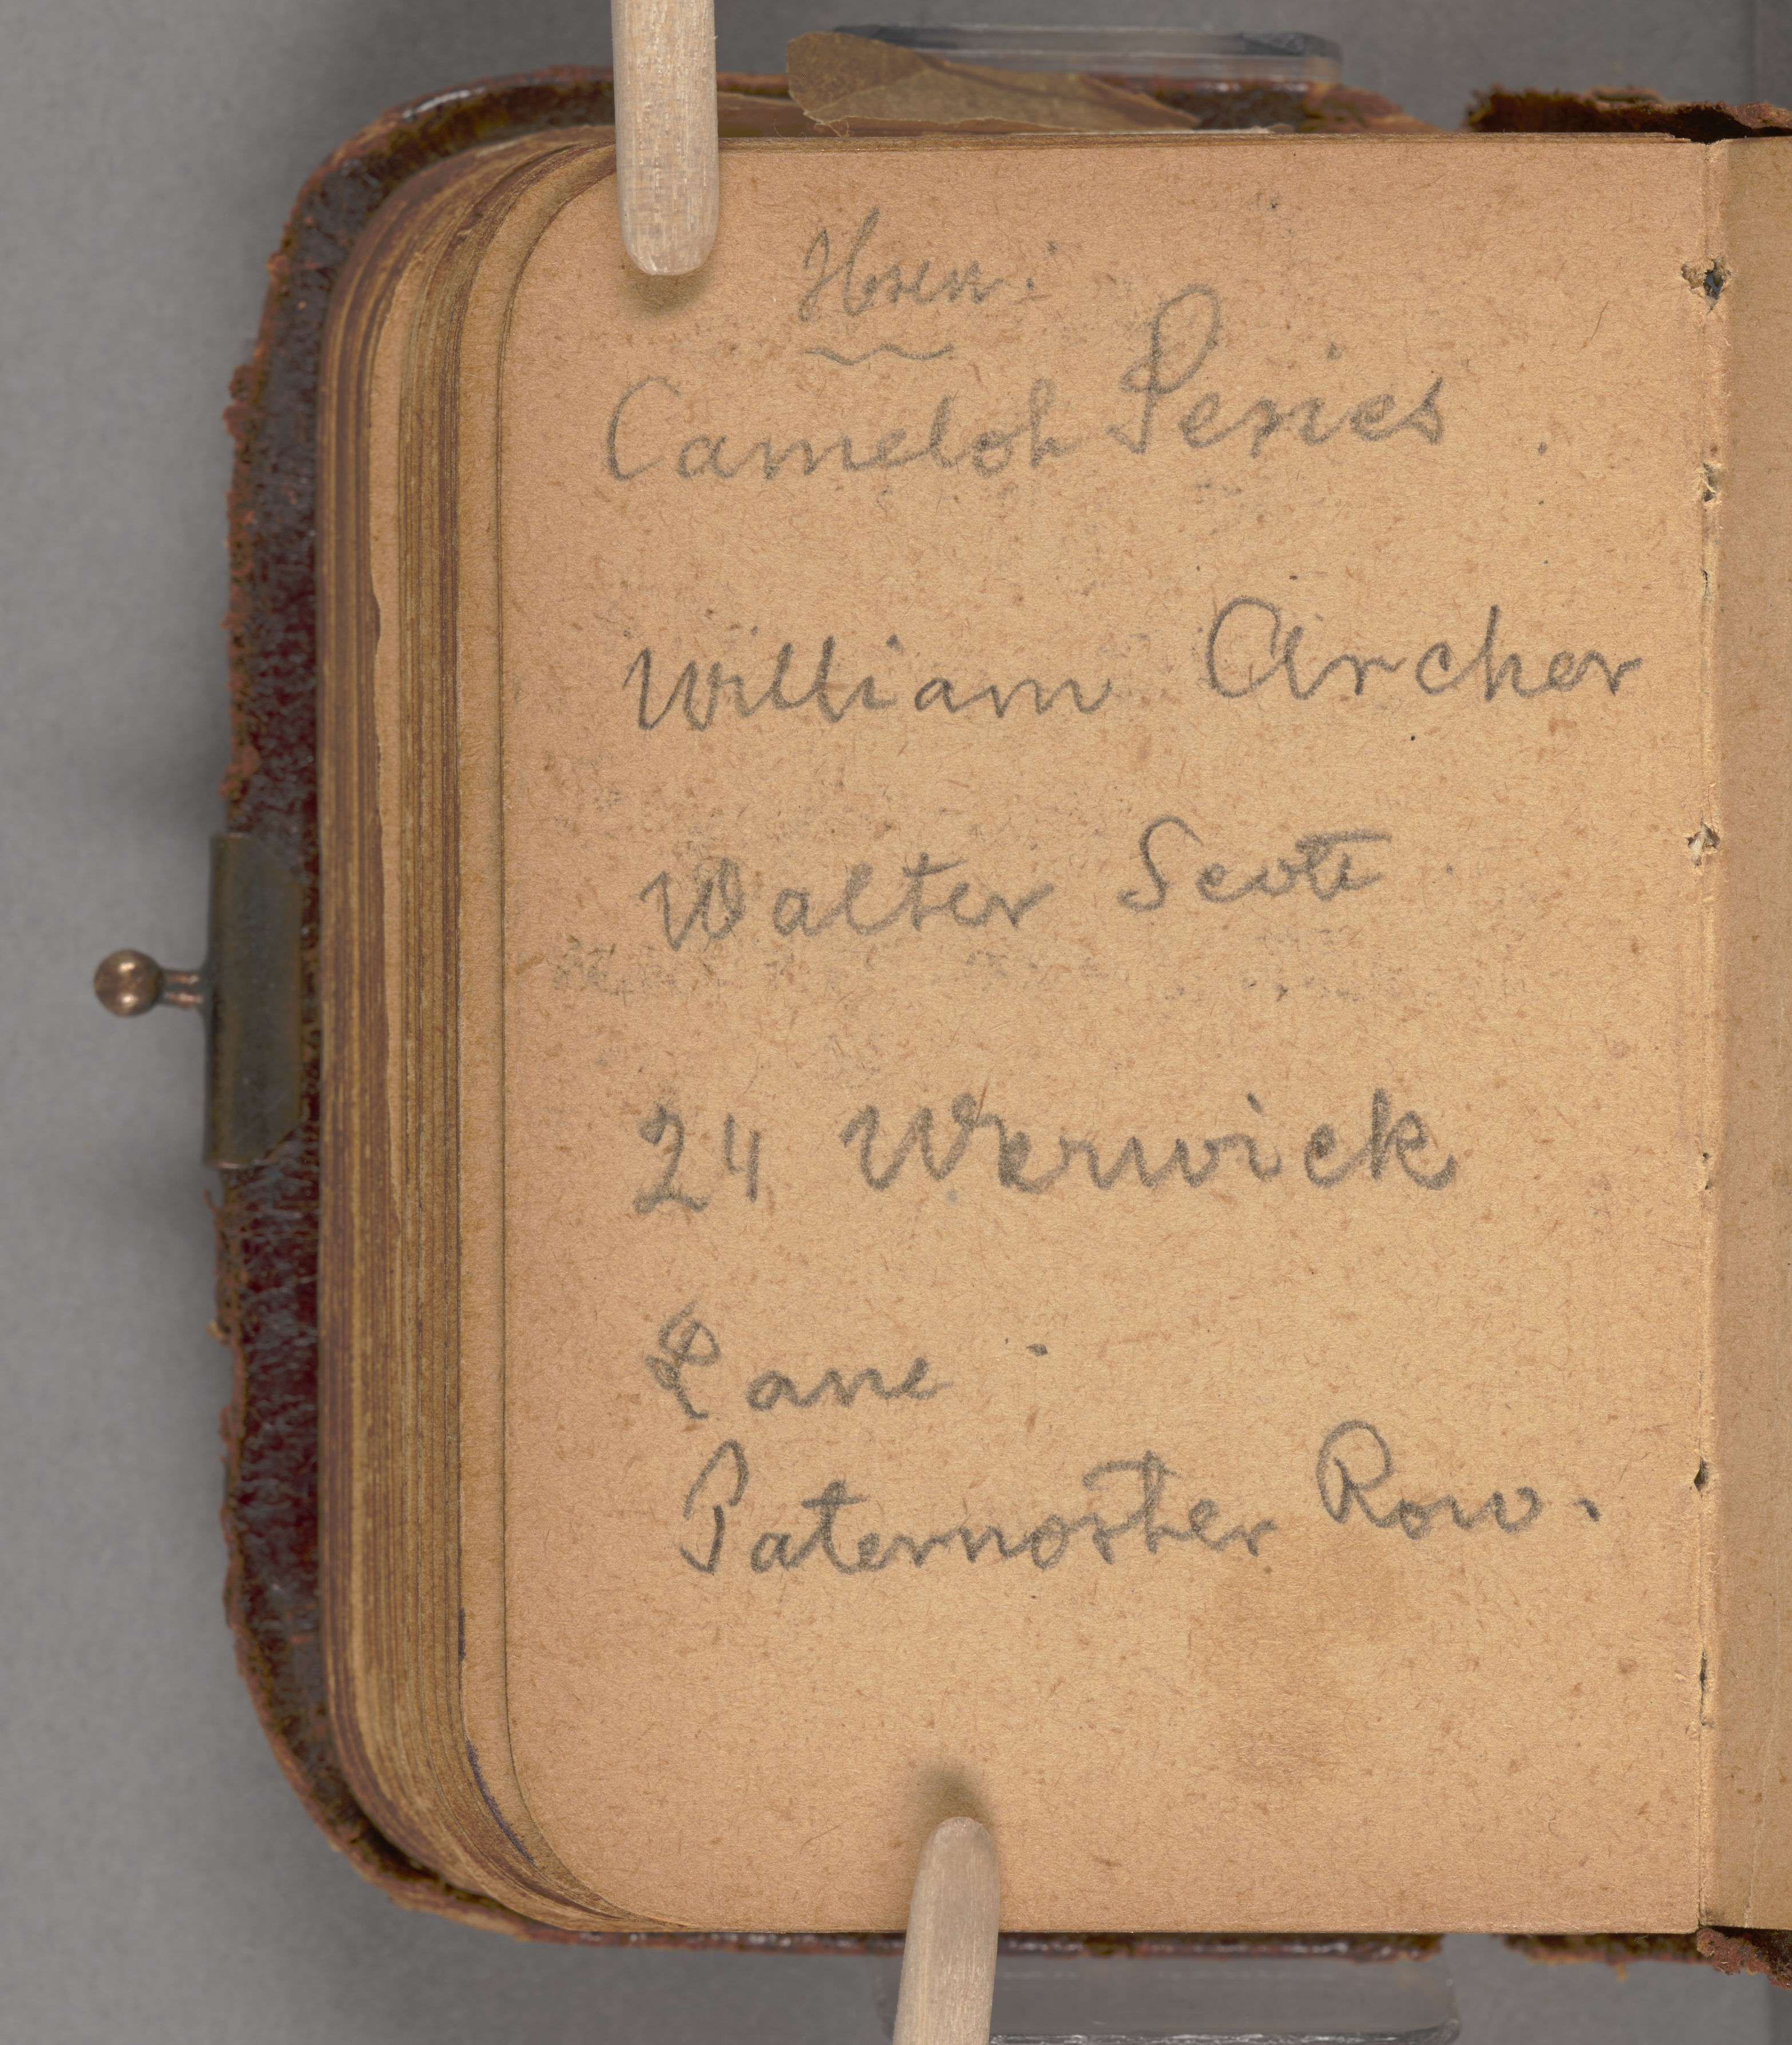 Ibsen:
Cameloh Series.
William Archer
Walter Scott.
24 Warwick
Lane.
Paternosther Row.